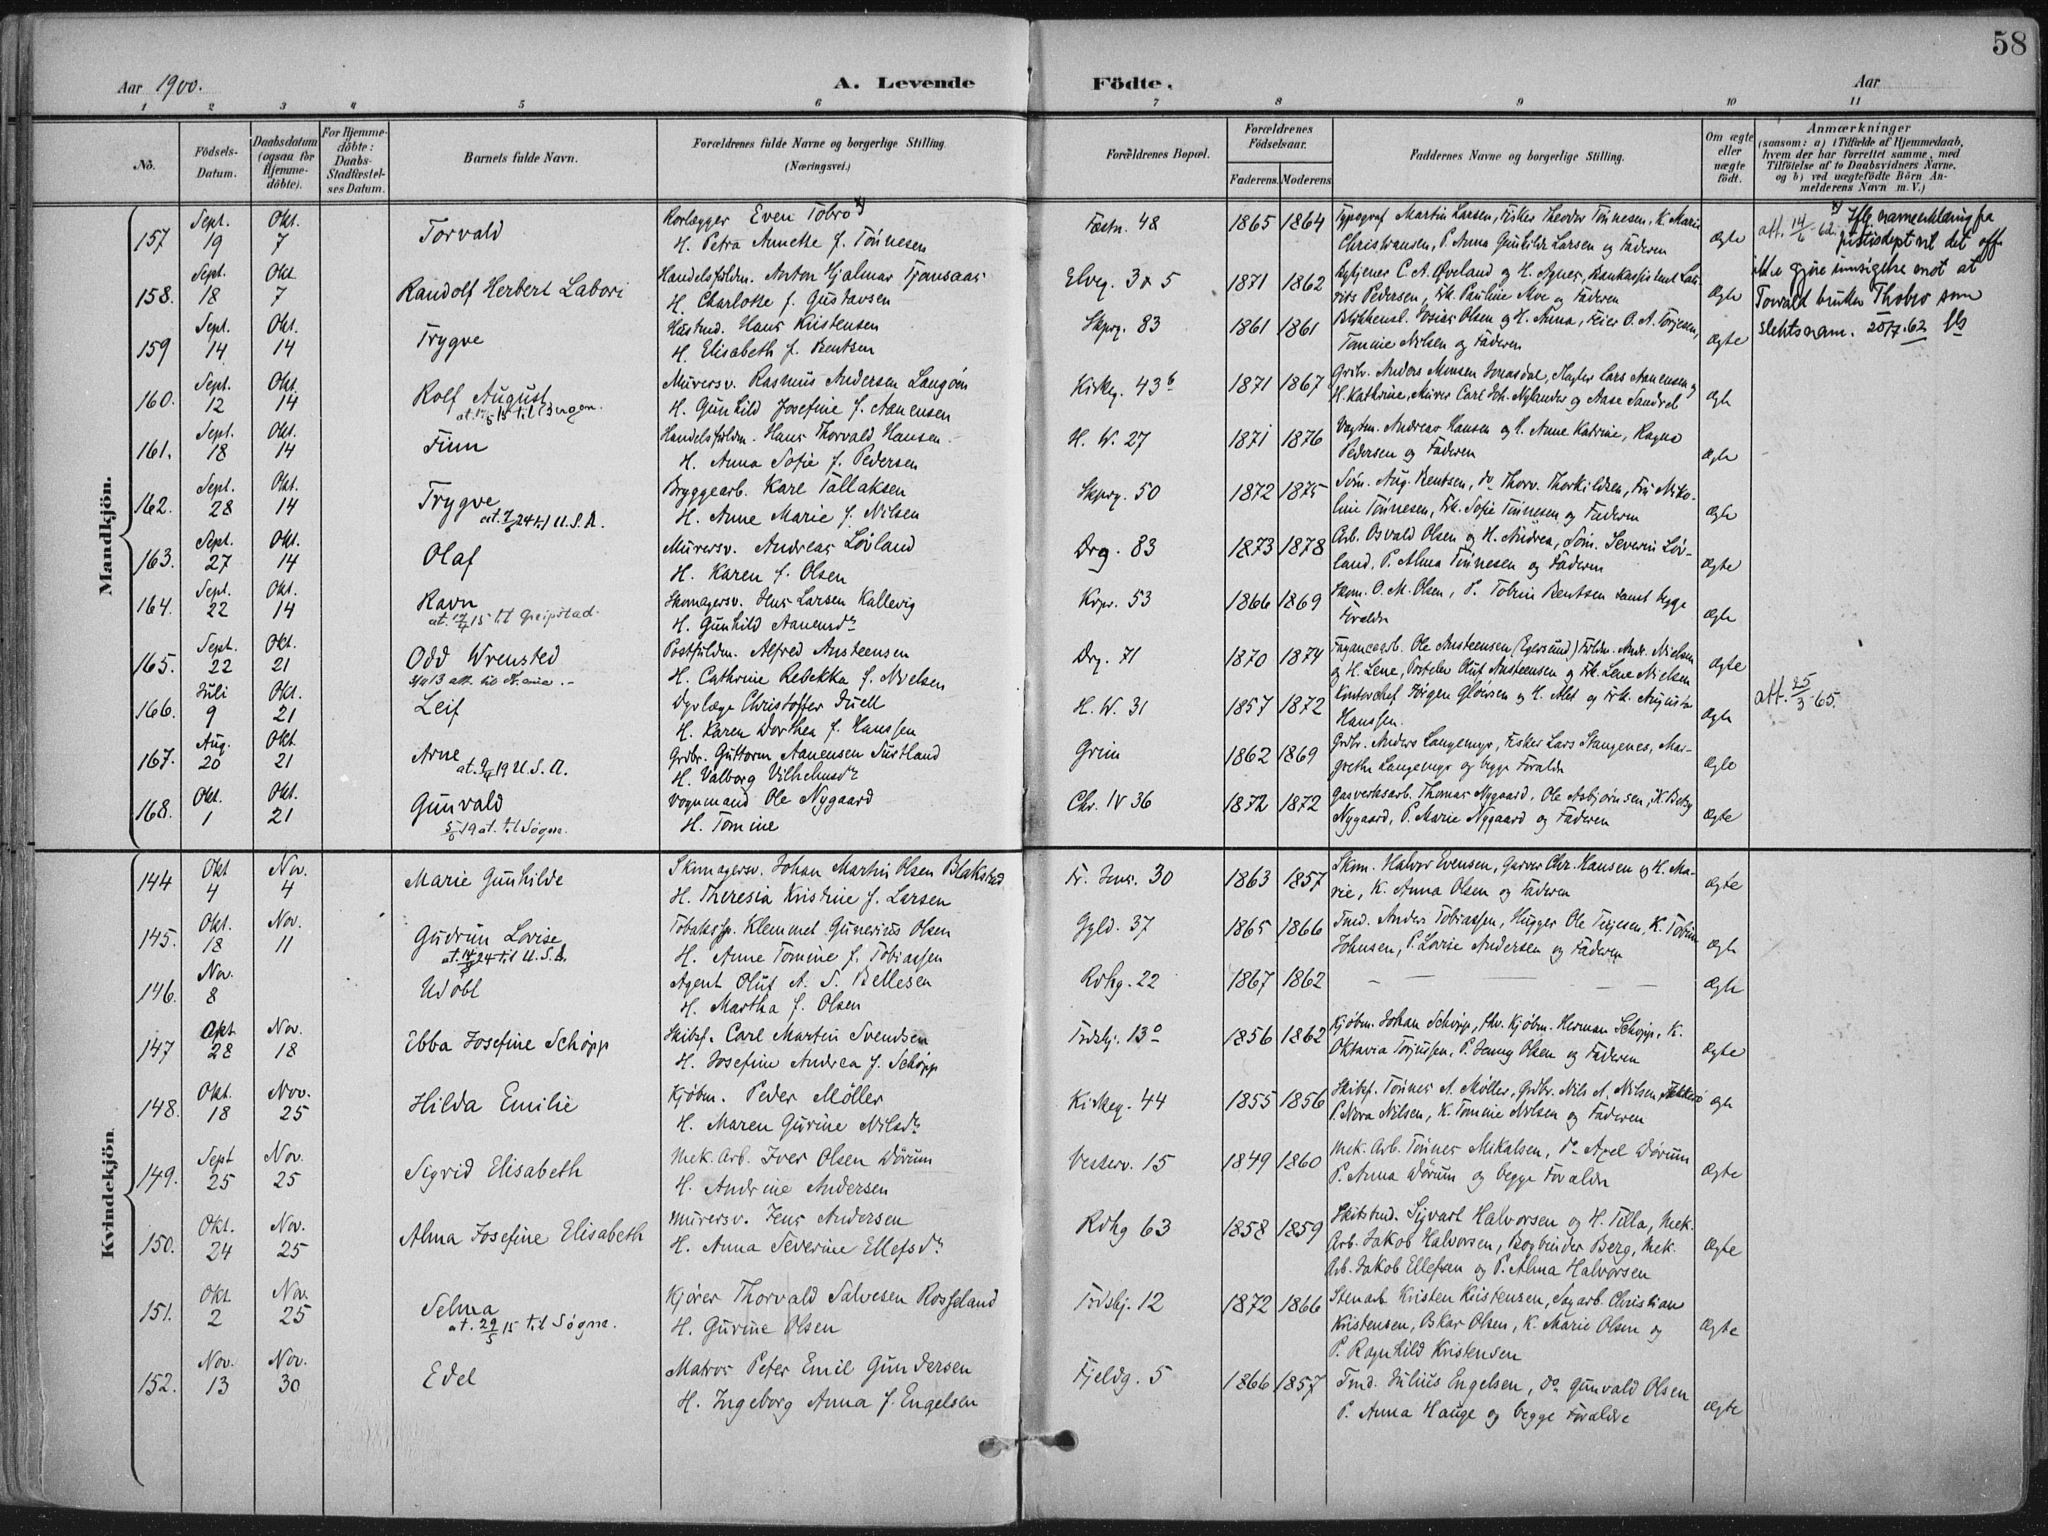 58
Aar 1900.
A. Levende Födte.
Aar
1 2 3 4 5 6 7 8 9 10 11
No.
Födsels-Datum.
Daabsdatum (ogsaa för Hjemme-döbte).
For Hjemme-döbte: Daabs-Stadfæstel-ses Datum.
Barnets fulde Navn.
Forældrenes fulde Navne og borgerlige Stilling. (Næringsvei.)
Forældrenes Bopæl.
Forældrenes Födselsaar.
Faderens. Moderens
Faddernes Navne og borgerlige Stilling.
Om ægte eller uægte födt.
Anmærkninger
(saasom: a) i Tilfælde af Hjemmedaab, hvem der har forrettet samme, med Tilföielse af to Daabsvidners Navne, og b) ved uægtefödte Börn An-melderens Navn m. V.)
Mandkjön.
157 Sept. 19 Okt. 7 Torvald Rørlægger Even Tobro x) Fæstn. 48 1865 1864 Typograf Martin Larsen, Fisker Theodor Tönnesen, K. Marie
H. Petra Annette f. Tönnesen Christiansen, P. Anna Gunhilde Larsen og Faderen ægte
att. 14/6 62. x) Ifle navneerklæring fra justisdept vil det off. ikke gjøre innsigelse mot at Torvald bruker Thobro som slektsnavn. 20/7.62
158. Sept. 18 Okt. 7 Randolf Herbert Labori Handelsfuldm. Anton Hjalmar Tjomsaas Elveg. 3 & 5 1871 1862 C. A. Øveland og H. Agnes, Bankassistent
H. Charlotte f. Gustavsen Pedersen, Frk. Pauline Moe og Faderen Ægte
159 Sept. 14 Okt. 14 Trygve Hans Kristensen Skprg. 83 1861 1861 Olsen og H. Anna, Feier O. A. Torjesen,
H. Elisabeth f. Bentsen Tomine Nilsen og Faderen Ægte
160. Sept. 12 Okt. 14 Rolf August Murersv. Rasmus Andersen Langøen Kirkeg. 43b 1871 1867 Grdbr. Anders Monsen Lars Aanensen og
at. 15 til Bergen. H. Gunhild Josefine f. Aanensen H. Kathrine, Murer Carl Joh. Nylander og Aase ægte
161. Sept. 18 Okt. 14 Finn Handelsfuldm. Hans Thorvald Hansen H. W. 27 1871 1876 Vagtm. Andreas Hansen og H. Anne Katrine, Ragna
H. Anna Sofie f. Pedersen Pedersen og Faderen ægte
162. Sept. 28 Okt. 14 Trygve Bryggearb. Karl Tallaksen Skprg. 50 1872 1875 Søm. Aug. Bentsen, do Thorv. Thorkildsen, Frk Niko-
at. 24 til U.S.A. H. Anne Marie f. Nilsen line Tönnesen, Frk. Sofie Tönnesen og Faderen ægte
163. Sept. 27 Okt. 14 Olaf Murersv. Andreas Løvland Drg. 83 1873 1878 Arb. Osvald Olsen og H. Andrea, Søm. Severin Løv-
H. Karen f. Olsen land, P. Alma Tönnesen og Faderen ægte
164. Sept. 22 Okt. 14 Ravn Skomagersv. Jens Larsen Kallevig Krpr. 53 1866 1869 Skom. O. M. Olsen, P. Tobine Bentsen samt begge
at. 17/4 15 til Greipstad. H. Gunhild Aanensdr Forældre ægte
165. Sept. 22 Okt. 21 Odd Wrensted Postfuldm. Alfred Austeensen Drg. 71 1870 1874 Ole Austeensen (Egersund) Fuldm. Andr. Nielsen
H. Cathrine Rebekka f. Nielsen og H. Lene, Oluf Austeensen og Frk. Lene Nielsen ægte
166. Juli 9 Okt. 21 Leif Dyrlæge Christoffer Duell H. W. 31 1857 1872 Kontorchef Jørgen og H. Alet og Frk. Augusta
H. Karen Dorthea f. Hanssen Hanssen. Ægte att. 25/3 65.
167. Aug. 20 Okt 21 Arne Grdbr. Guttorm Aanensen Sustland Grim 1862 1869 Grdbr. Anders Langemyr, Fisker Lars Stangenes, Mar-
at. 19 U.S.A. H. Valborg Vilhelmsdr grethe Langemyr og begge Forældre ægte
168. Okt. 1 Okt. 21 Gunvald Vognmand Ole Nygaard Chr. IV 36 1872 1872 Gasverksarb. Thomas Nygaard, Ole Asbjørnsen, K. Betsy
19 at. til Søgne. H. Tomine Nygaard, P. Marie Nygaard og Faderen ægte
Kvindekjön.
144 Okt 4 Nov. 4 Marie Gunhilde Skomagersv. Johan Martin Olsen Blakstad Fr. Jens. 30 1863 1857 Skom. Halvor Evensen, Garver Chr. Hansen og H. Ma-
H. Theresia Kristine f. Larsen rie, K. Anna Olsen og Faderen ægte
145. Okt. 18 Nov. 11 Gudrun Lovise Tobaksp. Klemmet Gunerius Olsen Gyld. 37 1865 1866 Tmd. Anders Tobiassen, Hugger Ole Terjesen, K. Tobine
at. 14/8 24 til U.S.A. H. Anne Tomine f. Tobiassen Johnsen, P. Lovise Andersen og Faderen ægte
146. Nov. 8 Udøbt Agent Oluf A. S. Bellesen Rdhg. 22 1867 1862 — — — ægte
H. Martha f. Olsen
147 Okt 28 Nov. 18 Ebba Josefine Schøpp Skibsf. Carl Martin Svendsen Todsbj. 13 1856 1862 Kjøbm. Johan Schøpp, fhv. Kjøbm. Herman Schøpp, K.
H. Josefine Andrea f. Schøpp Oktavia Torjussen, P. Jenny Olsen og Faderen Ægte
148. Okt. 18 Nov. 25 Hilda Emilie Kjøbm. Peder Møller Kirkeg. 44 1855 1856 Skibsf. Tönnes A. Møller, Grdbr. Nils A. Nilsen,
H. Maren Gurine Nilsdr P. Nora Nilsen, K. Tomine Nilsen og Faderen ægte
149. Sept 25 Nov. 25 Sigrid Elisabeth Mek. Arb. Iver Olsen Dørum Vesterv. 15 1849 1860 Mek. Arb. Tönnes Mikalsen, do Axel Dørum
H. Andrine Andersen P. Anna Dørum og begge Forældre Ægte
150. Okt. 24 Nov. 25 Alma Josefine Elisabeth Murersv. Jens Andersen Rdhg 63 1858 1859 Skibstmd. Sigvart Halvorsen og H. Tilla, Mek.
H. Anna Severine Ellefsdr Arb. Jakob Halvorsen, Bogbinder Berg, Mek. Ægte
Arb. Jakob Ellefsen og P. Alma Halvorsen
151. Okt 2 Nov. 25 Selma Kjører Thorvald Salvesen Rosseland Todsbj. 12 1872 1866 Stenarb Kristen Kristensen, Sagarb. Christian
at. 29/5 15 til Søgne. H. Gurine Olsen Kristensen, Oskar Olsen, K. Marie Olsen og Ægte
P. Ragnhild Kristensen
152. Nov. 13 Nov. 30 Edel Matros Peter Emil Gundersen Fjeldg. 5 1866 1857 Tmd. Julius Engelsen, do Gunvald Olsen
H. Ingeborg Anna f. Engelsen P. Anna Hauge og begge Forældre ægte